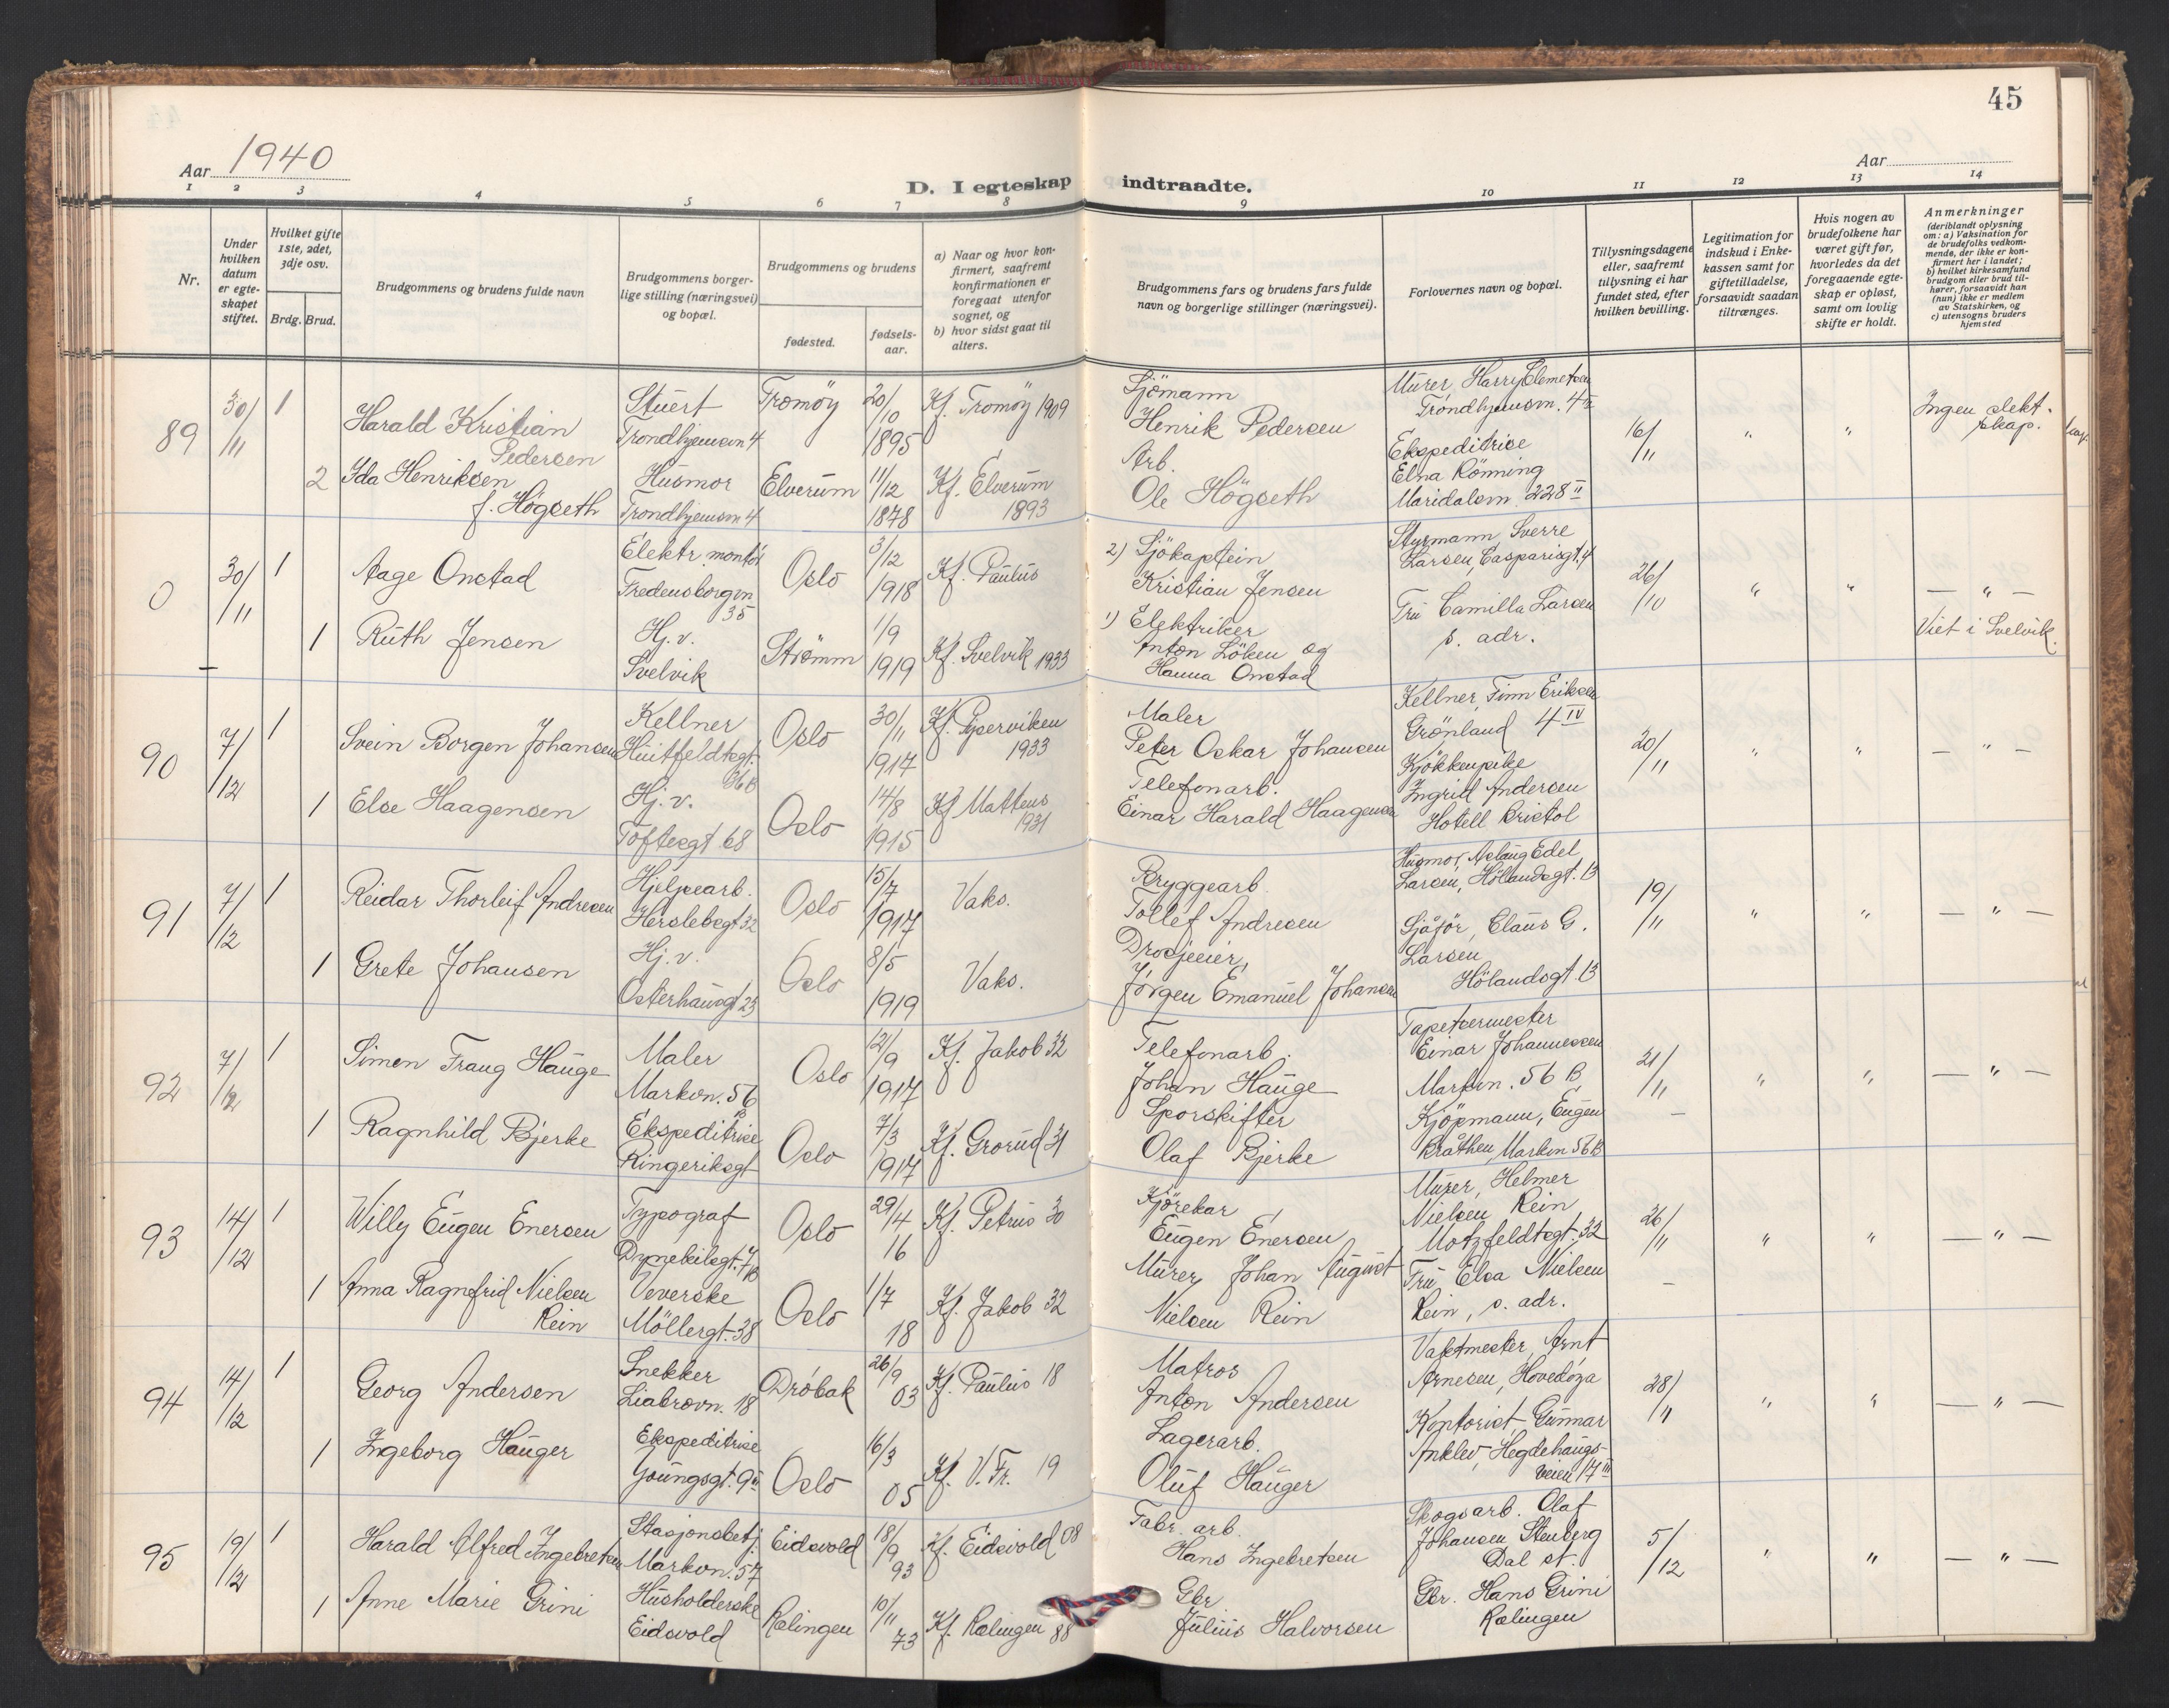 45
Aar 1940
Aar
D. I egteskap indtraadte.
1 2 3 4 5 6 7 8 9 10 11 12 13 14
Nr.
Under
hvilken
datum
er egte-
skapet
stiftet.
Hvilket gifte
1ste, 2det,
3dje osv.
Brdg. Brud.
Brudgommens og brudens fulde navn
Brudgommens borger-
lige stilling (næringsvei)
og bopæl.
Brudgommens og brudens
fødested.
fødsels-
aar.
a) Naar og hvor kon-
firmert, saafremt
konfirmationen er
foregaat utenfor
sognet, og
b) hvor sidst gaat til
alters.
Brudgommens fars og brudens fars fulde
navn og borgerlige stillinger (næringsvei).
Forlovernes navn og bopæl.
Tillysningsdagene
eller, saafremt
tillysning ei har
fundet sted, efter
hvilken bevilling.
Legitimation for
indskud i Enke-
kassen samt for
giftetilladelse,
forsaavidt saadan
tiltrænges.
Hvis nogen av
brudefolkene har
været gift før,
hvorledes da det
foregaaende egte-
skap er opløst,
samt om lovlig
skifte er holdt.
Anmerkninger
(deriblandt oplysning
om: a) Vaksination for
de brudefolks vedkom-
mende, der ikke er kon-
firmert her i landet;
b) hvilket kirkesamfund
brudgom eller brud til-
hører, forsaavidt han
(hun) ikke er medlem
av Statskirken, og
c) utensogns bruders
hjemsted
89
30/11
1
Harald Kristian
Pedersen
Stuert
Trondhjemsvn 4
Tromöy
20/10
1895
Kf. Tromöy 1909
Sjömann
Henrik Pedersen
Murer, Harry Clemetsen
Trondhjemsvn. 4 III
16/11
"
"
Ingen slekt-
skap.
2
Ida Henriksen
f. Högseth
Husmor
Trondhjemsvn 4
Elverum
11/12
1878
Kf. Elverum
1893
Arb.
Ole Högseth
Ekspeditrise
Elna Rönning
Maridalsvn. 228 II
0
30/11
1
Aage Onstad
Elektr. montör
Fredensborgvn
35
Oslo
3/12
1918
Kf. Paulus
2) Sjökaptein
Kristian Jensen
Styrmann, Sverre
Larsen, Casparisgt. 4
26/10
"
"
— " —
1
Ruth Jensen
Hj. v.
Svelvik
Strömm
1/9
1919
Kf. Svelvik 1933
1) Elektriker
Anton Löken og
Hanna Onstad
Fru Camilla Larsen
s. adr.
Viet i Svelvik.
90
7/12
1
Svein Borgen Johansen
Kellner
Huitfeldtsgt.
Oslo
30/11
1917
Kf. Piperviken
1933
Maler
Peter Oskar Johansen
Kellner, Finn Eriksen
Grönland 4 IV
20/11
"
"
— " —
1
Else Haagensen
Hj. v.
Toftesgt 68
Oslo
14/8
1915
Kf. Matteus
1931
Telefonarb.
Einar Harald Haagensen
Kjökkenpike
Ingrid Andersen
Hotell Bristol
91
7/12
1
Reidar Thorleif Andresen
Hjelpearb.
Herslebsgt 32
Oslo
15/7
1917
Vaks.
Bryggearb.
Tollef Andresen
Husmor, Aslaug Edel
Larsen, Hölandsgt. 13
19/11
"
"
— " —
1
Grete Johansen
Hj. v.
Osterhausgt 23
Oslo
8/5
1919
Vaks.
Drosjeeier,
Jörgen Emanuel Johansen
Sjåför, Claus G.
Larsen
Hölandsgt. 13
92
7/12
1
Simen Fraug Hauge
Maler
Markvn. 56
B
Oslo
12/9
1917
Kf. Jakob 32
Telefonarb.
Johan Hauge
Tapetsermester
Einar Johannessen
Markvn. 56 B
21/11
"
"
— " —
1
Ragnhild Bjerke
Ekspeditrise
Ringeriksgt
Oslo
7/3
1917
Kf. Grorud 31
Sporskifter
Olaf Bjerke
Kjöpmann, Eugen
Bråthen, Markvn 56 B
—
93
14/12
1
Willy Eugen Enersen
Typograf
Dynekilsgt. 7
B
Oslo
29/4
16
Kf. Petrus 30
Kjörekar
Eugen Enersen
Murer, Helmer
Nielsen Rein
Motzfeldtsgt. 32
26/11
"
"
— " —
1
Anna Ragnfrid Nielsen
Rein
Veverske
Möllergt. 38
Oslo
1/7
18
Kf. Jakob 32
Murer, Johan August
Nielsen Rein
Fru Elsa Nielsen
Rein, s. adr.
—
94
14/12
1
Georg Andersen
Snekker
Liabrovn. 18
Dröbak
26/9
03
Kf. Paulus 18
Matros
Anton Andersen
Vaktmester, Arnt
Arnesen, Hovedöya
28/11
"
"
— " —
1
Ingeborg Hauger
Ekspeditrise
Youngsgt. 9 II
Oslo
16/3
05
Kf. V. Fr. 19
Lagerarb.
Oluf Hauger
Kontorist Gunnar
Anklev, Hegdehaugs-
veien 17 III
95
19/12
1
Harald Alfred Ingebretsen
Stasjonsbetj.
Markvn. 57
Eidsvold
18/9
93
Kf. Eidsvold 08
Fabr. arb.
Hans Ingebretsen
Skogsarb. Olaf
Johansen Stenberg
Dal st.
5/12
"
"
— " —
1
Anne Marie Grini
Husholderske
Eidsvold
Rælingen
10/11
73
Kf. Rælingen 88
Gbr.
Julius Halvorsen
Gbr. Hans Grini
Rælingen